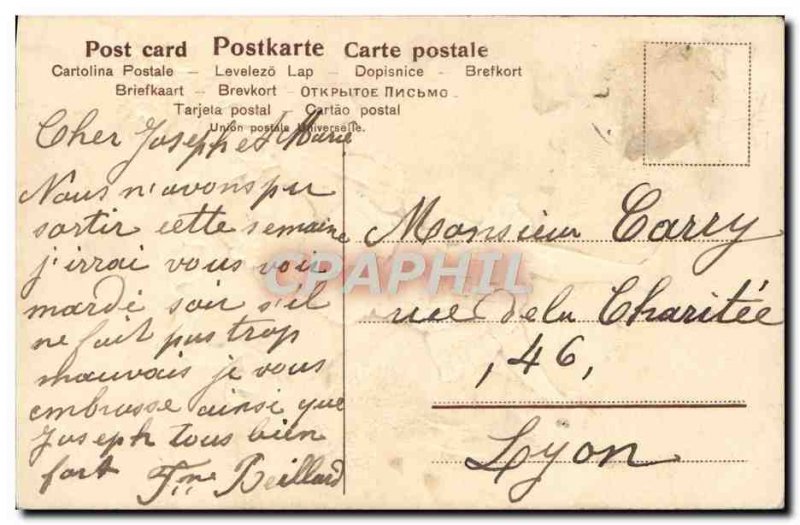 Post card Postkarte Carte postale
Cartolina Postale – Levelező Lap – Dopisnice – Brefkort
Briefkaart – Brevkort – Открытое Письмо
Tarjeta postal – Cartão postal
Union postale Universelle.
Cher Joseph et Marie
Nous n'avons pu
sortir cette semaine
j'irrai vous voir
mardi soir s'il
ne fait pas trop
mauvais je vous
embrasse ainsi que
Joseph tous bien
fort
Monsieur Carry
rue de la Charitée
, 46,
Lyon
CPAPHIL